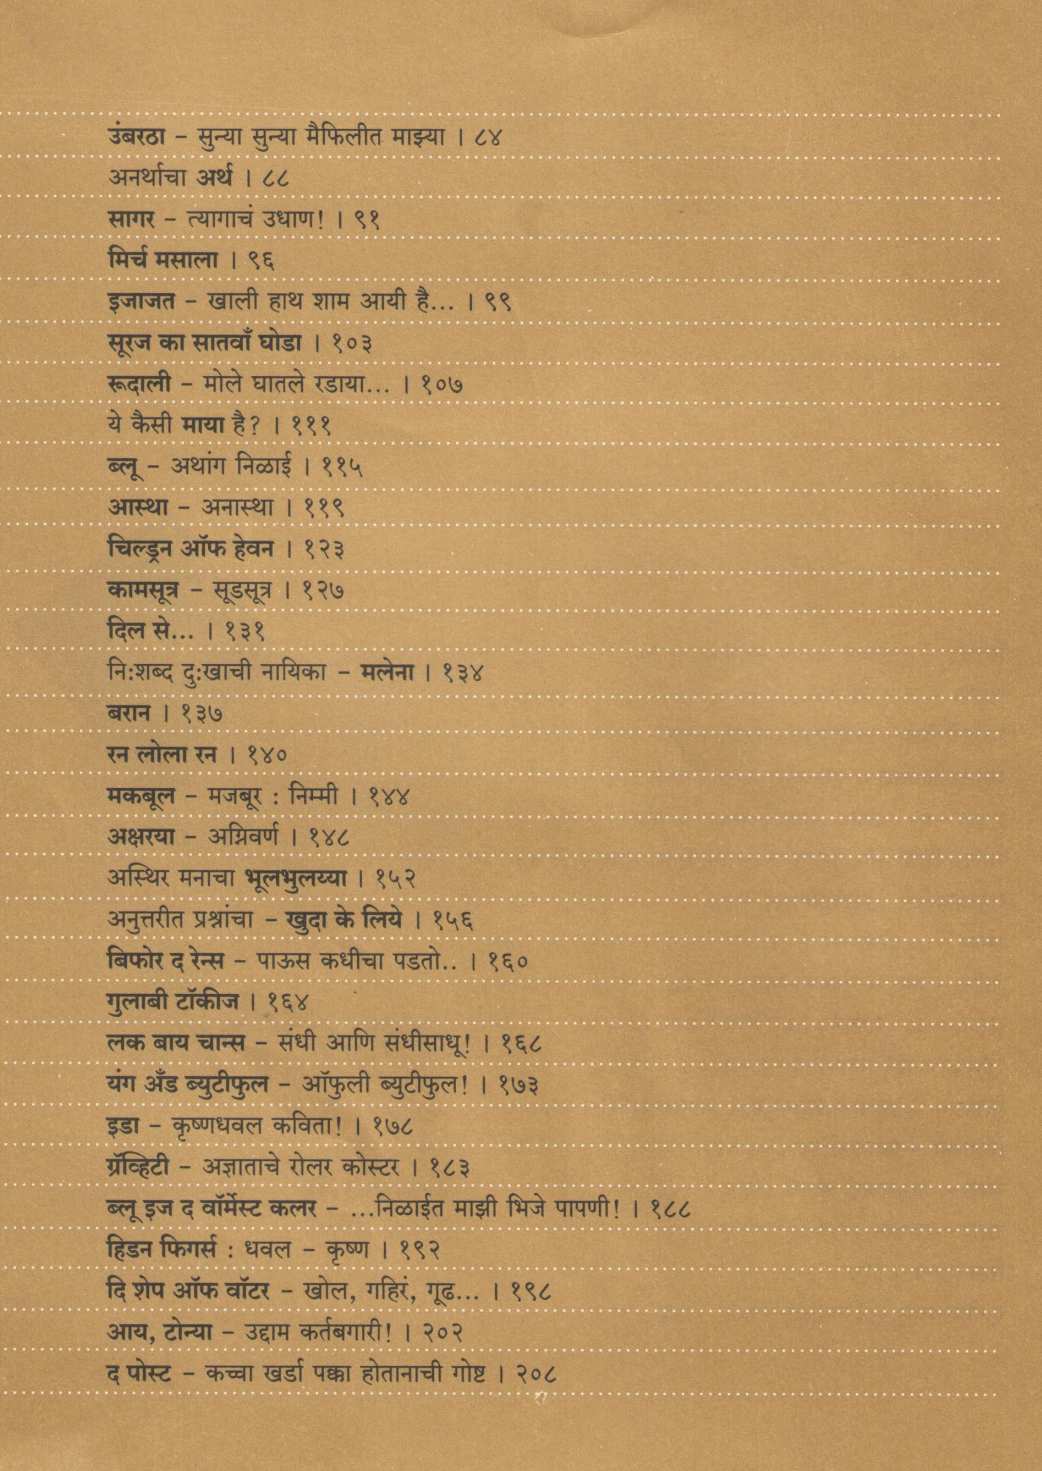 उंबरठा – सुन्या सुन्या मैफिलीत माझ्या । ८४
अनर्थाचा अर्थ । ८८
सागर – त्यागाचं उधाण! । ९१
मिर्च मसाला । ९६
इजाजत – खाली हाथ शाम आयी है... । ९९
सूरज का सातवाँ घोडा । १०३
रूदाली – मोले घातले रडाया... । १०७
ये कैसी माया है? । १११
ब्लू – अथांग निळाई । ११५
आस्था – अनास्था । ११९
चिल्ड्रन ऑफ हेवन । १२३
कामसूत्र – सूडसूत्र । १२७
दिल से... । १३१
नि:शब्द दु:खाची नायिका – मलेना । १३४
बरान । १३७
रन लोला रन । १४०
मकबूल – मजबूर : निम्मी । १४४
अक्षरया – अग्निवर्ण । १४८
अस्थिर मनाचा भूलभुलय्या । १५२
अनुत्तरीत प्रश्नांचा – खुदा के लिये । १५६
बिफोर द रेन्स – पाऊस कधीचा पडतो.. । १६०
गुलाबी टॉकीज । १६४
लक बाय चान्स – संधी आणि संधीसाधू! । १६८
यंग अँड ब्युटीफुल – ऑफुली ब्युटीफुल! । १७३
इडा – कृष्णधवल कविता! । १७८
ग्रॅव्हिटी – अज्ञाताचे रोलर कोस्टर । १८३
ब्लू इज द वॉर्मेस्ट कलर – ...निळाईत माझी भिजे पापणी! । १८८
हिडन फिगर्स : धवल – कृष्ण । १९२
दि शेप ऑफ वॉटर – खोल, गहिरं, गूढ... । १९८
आय, टोन्या – उद्दाम कर्तबगारी! । २०२
द पोस्ट – कच्चा खर्डा पक्का होतानाची गोष्ट । २०८